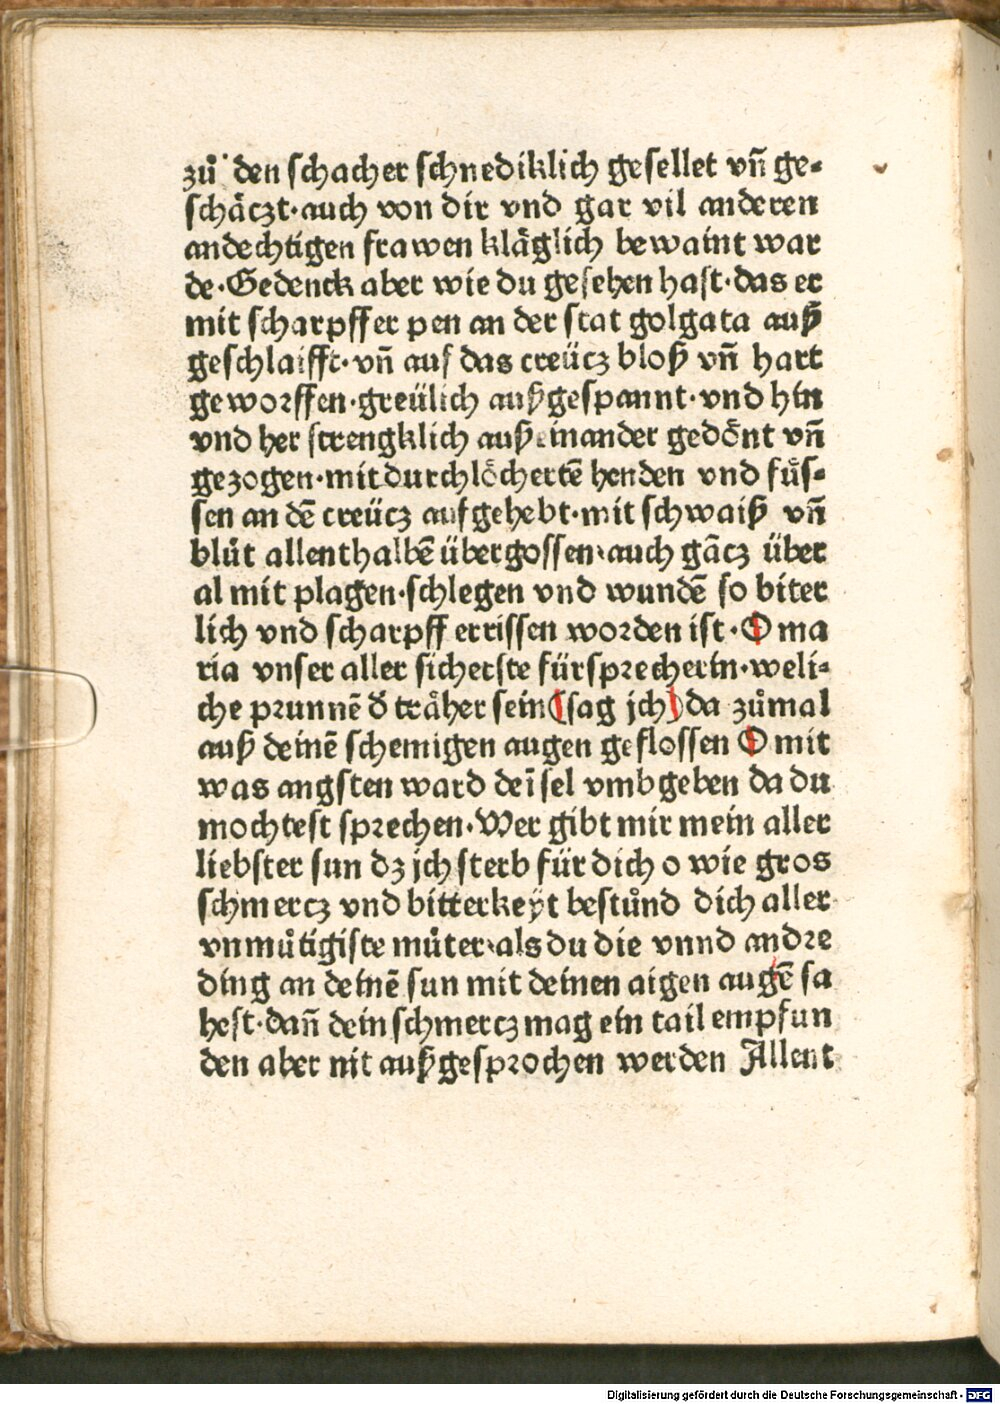 zuͦ den schacher schnediklich gesellet vñ ge-
schäczt·auch von dir vnd gar vil anderen
andechtigen frawen kläglich bewaint war
de·Gedenck aber wie du gesehen hast·das er
mit scharpffer pen an der stat golgata auß
geschlaifft·vñ auf das creücz bloß vñ hart
geworffen·greülich außgespannt·vnd hin
vnd her strengklich außeinander gedönt vñ
gezogen·mit durchlöchertē henden vnd füs-
sen an dē creücz aufgehebt·mit schwaiß vñ
bluͦt allenthalbē übergossen·auch gācz über
al mit plagen·schlegen vnd wundē so biter
lich vnd scharpff errissen worden ist·O ma
ria vnser aller sicherste fürsprecherin·weli-
che prunnē d̄ träher sein (sag jch) da zuͦmal
auß deinē schemigen augen geflossen O mit
was angsten ward deī sel vmbgeben da du
mochtest sprechen·Wer gibt mir mein aller
liebster sun dz jch sterb für dich o wie gros
schmercz vnd bitterkeyt bestuͦnd dich aller
vnmuͦtigiste muͦter·als du die vnnd andre
ding an deinē sun mit deinen aigen augē sa
hest·dañ dein schmercz mag ein tail empfun
den aber nit außgesprochen werden Allent
Digitalisierung gefördert durch die Deutsche Forschungsgemeinschaft - DFG